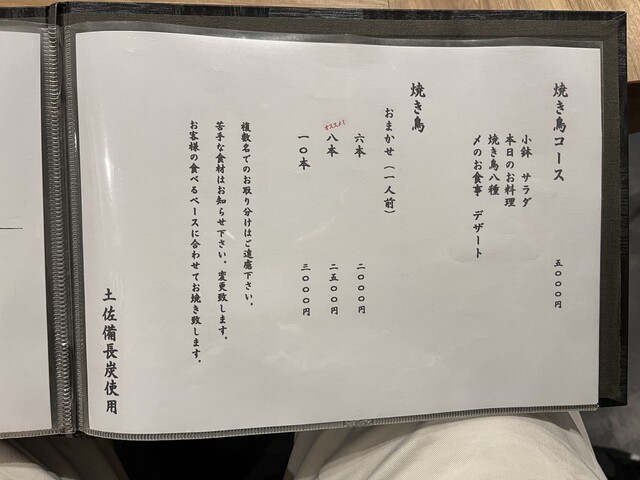 焼き鳥コース 五〇〇〇円
小鉢 サラダ
本日のお料理
焼き鳥八種
〆のお食事 デザート
焼き鳥
おまかせ（一人前）
六本 二〇〇〇円
オススメ！
八本 二五〇〇円
一〇本 三〇〇〇円
複数名でのお取り分けはご遠慮下さい。
苦手な食材はお知らせ下さい。変更致します。
お客様の食べるペースに合わせてお焼き致します。
土佐備長炭使用